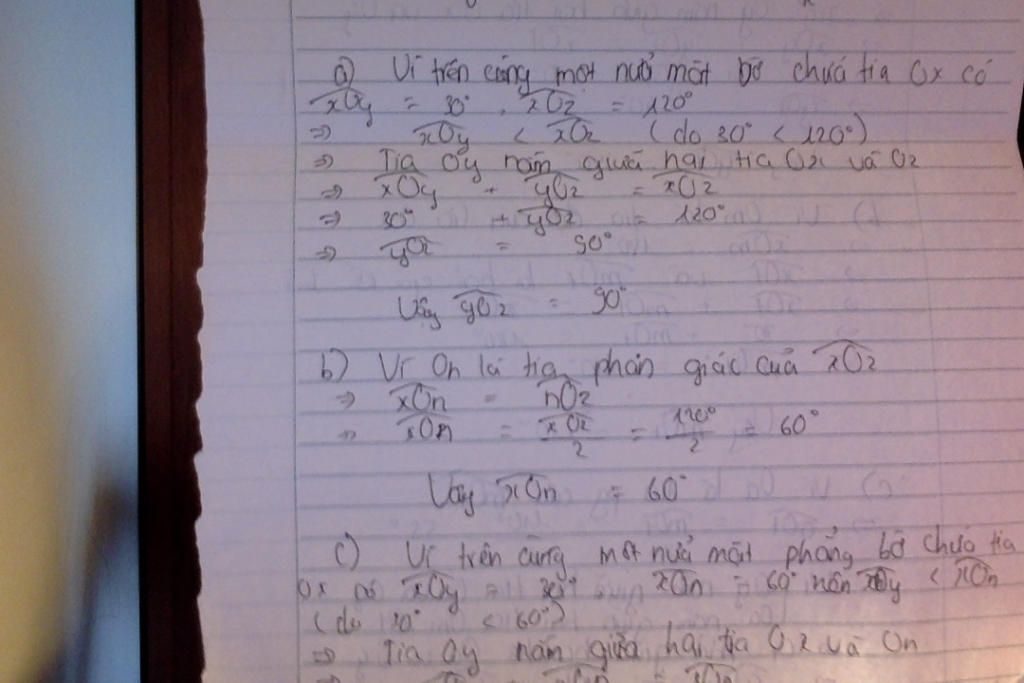 a) Vì trên cùng một nửa mặt bờ chứa tia Ox có
xOy = 30°, xOz = 120°
⇒ xOy < xOz (do 30° < 120°)
⇒ Tia Oy nằm giữa hai tia Ox và Oz
⇒ xOy + yOz = xOz
⇒ 30° + yOz = 120°
⇒ yOz = 90°
Vậy yOz = 90°
b) Vì On là tia phân giác của xOz
⇒ xOn = nOz
⇒ xOn = xOz/2 = 120°/2 = 60°
Vậy xOn = 60°
c) Vì trên cùng một nửa mặt phẳng bờ chứa tia
Ox có xOy = 30° xOn = 60° nên xOy < xOn
(do 30° < 60°)
⇒ Tia Oy nằm giữa hai tia Ox và On